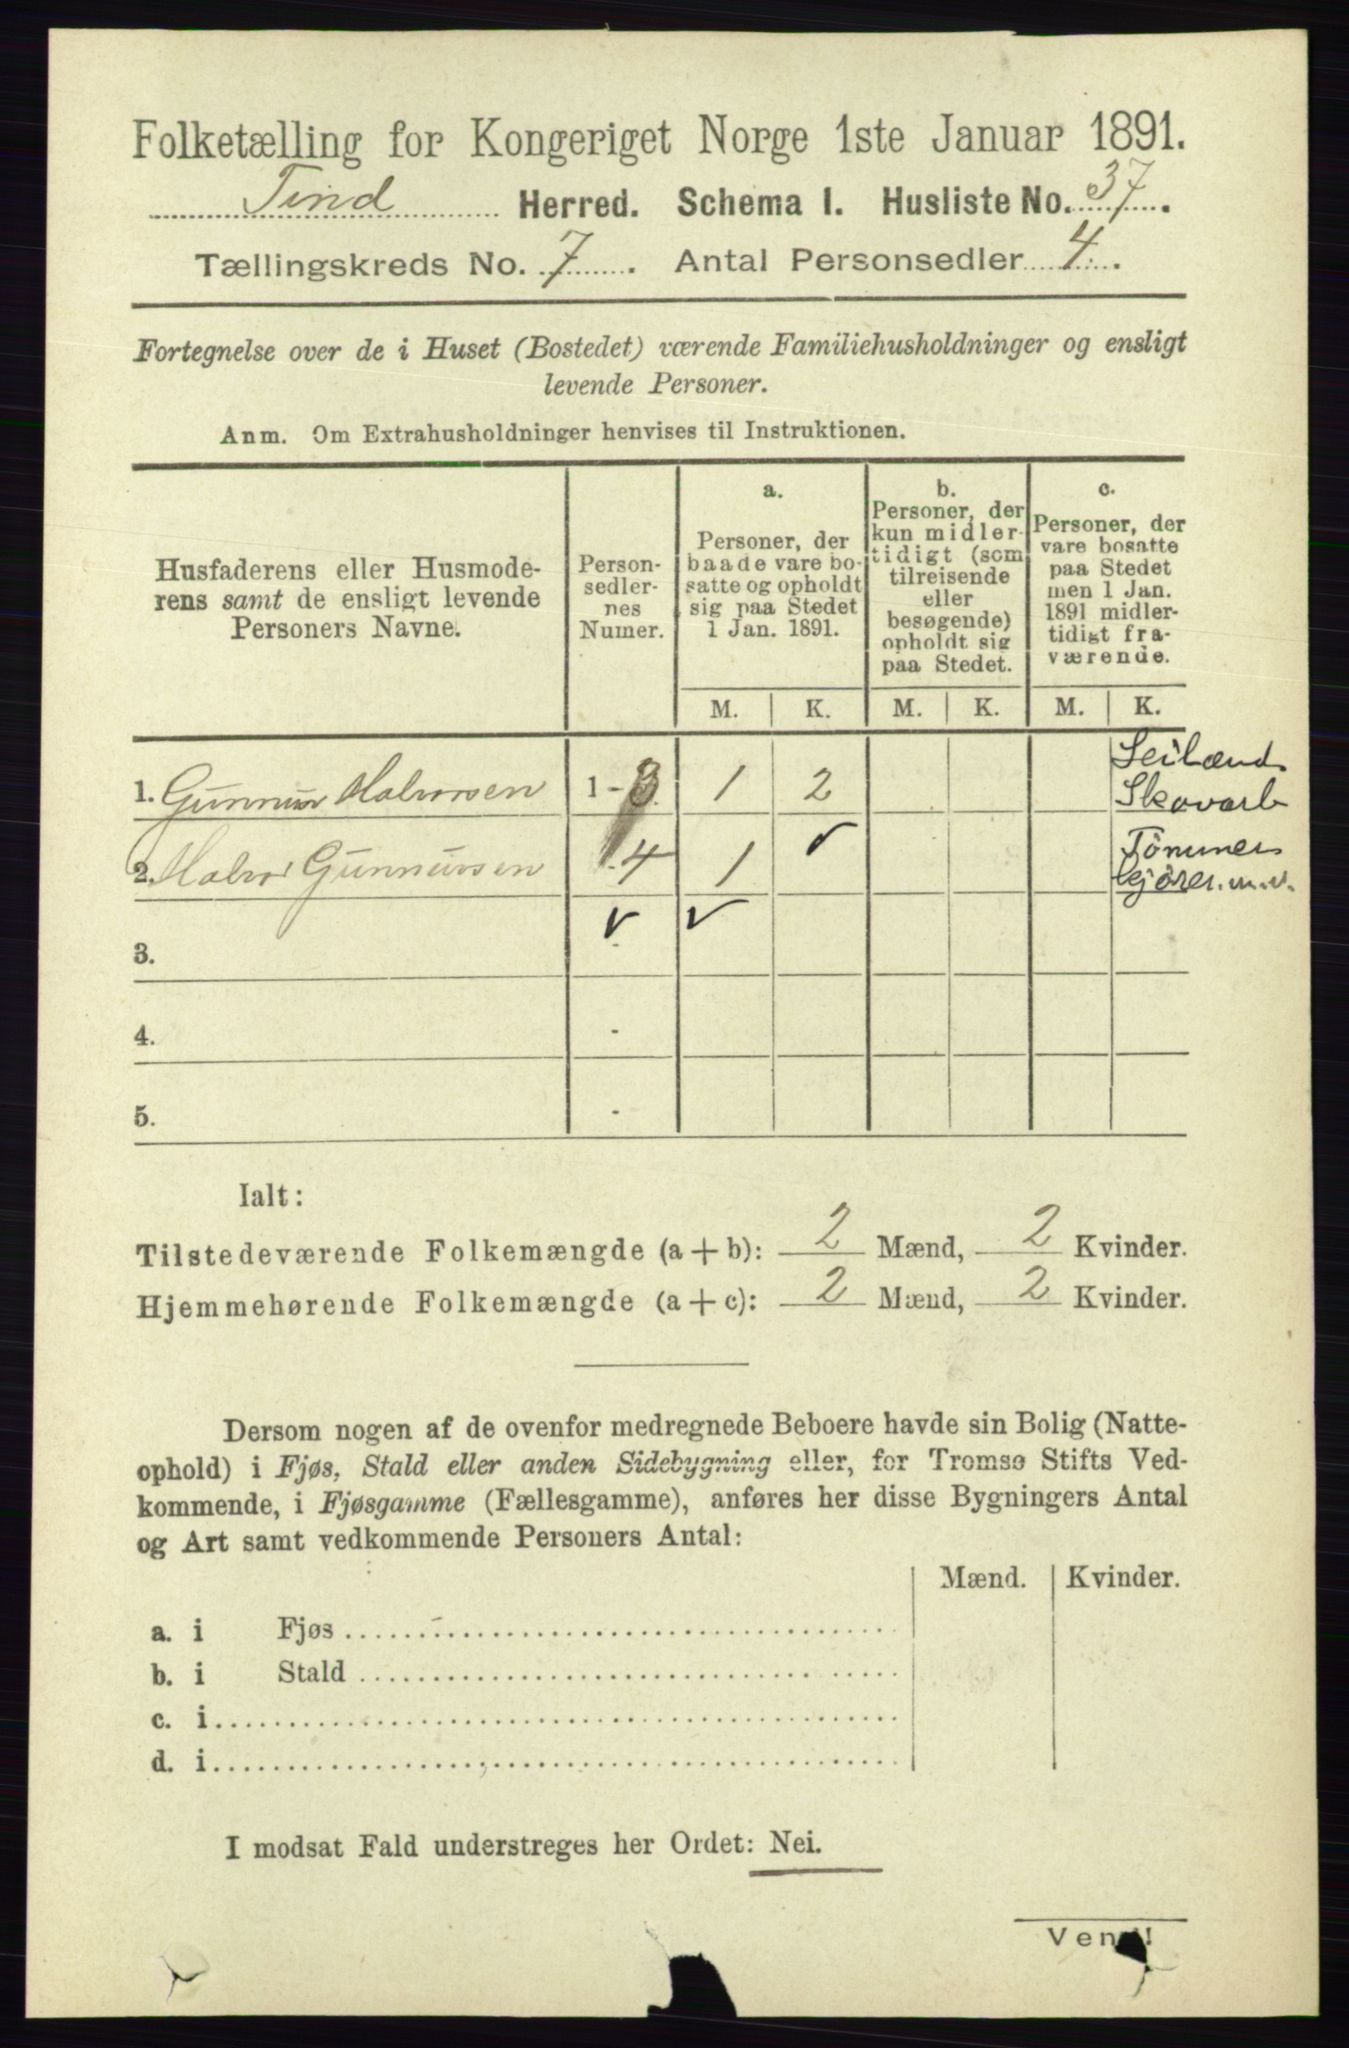 Folketælling for Kongeriget Norge 1ste Januar 1891.
Tind Herred. Schema I. Husliste No. 37.
Tællingskreds No. 7. Antal Personsedler 4.
Fortegnelse over de i Huset (Bostedet) værende Familiehusholdninger og ensligt
levende Personer.
Anm. Om Extrahusholdninger henvises til Instruktionen.
Husfaderens eller Husmode-
rens samt de ensligt levende
Personers Navne.
Person-
sedler-
nes
Numer.
a.
Personer, der
baade vare bo-
satte og opholdt
sig paa Stedet
1 Jan. 1891.
b.
Personer, der
kun midler-
tidigt (som
tilreisende
eller
besøgende)
opholdt sig
paa Stedet.
c.
Personer, der
vare bosatte
paa Stedet
men 1 Jan.
1891 midler-
tidigt fra-
værende.
M. K. M. K. M. K.
1. Gunnur Halvorsen 1 - 3 1 2
Skovarb
2. Halvor Gunnursen - 4 1
Tömmer
kjörer. m.v.
3. -
4. -
5. -
Ialt:
Tilstedeværende Folkemængde (a + b): 2 Mænd, 2 Kvinder.
Hjemmehørende Folkemængde (a + c): 2 Mænd, 2 Kvinder.
Dersom nogen af de ovenfor medregnede Beboere havde sin Bolig (Natte-
ophold) i Fjøs, Stald eller anden Sidebygning eller, for Tromsø Stifts Ved-
kommende, i Fjøsgamme (Fællesgamme), anføres her disse Bygningers Antal
og Art samt vedkommende Personers Antal:
Mænd. Kvinder.
a. i Fjøs
b. i Stald
c. i
d. i
I modsat Fald understreges her Ordet: Nei.